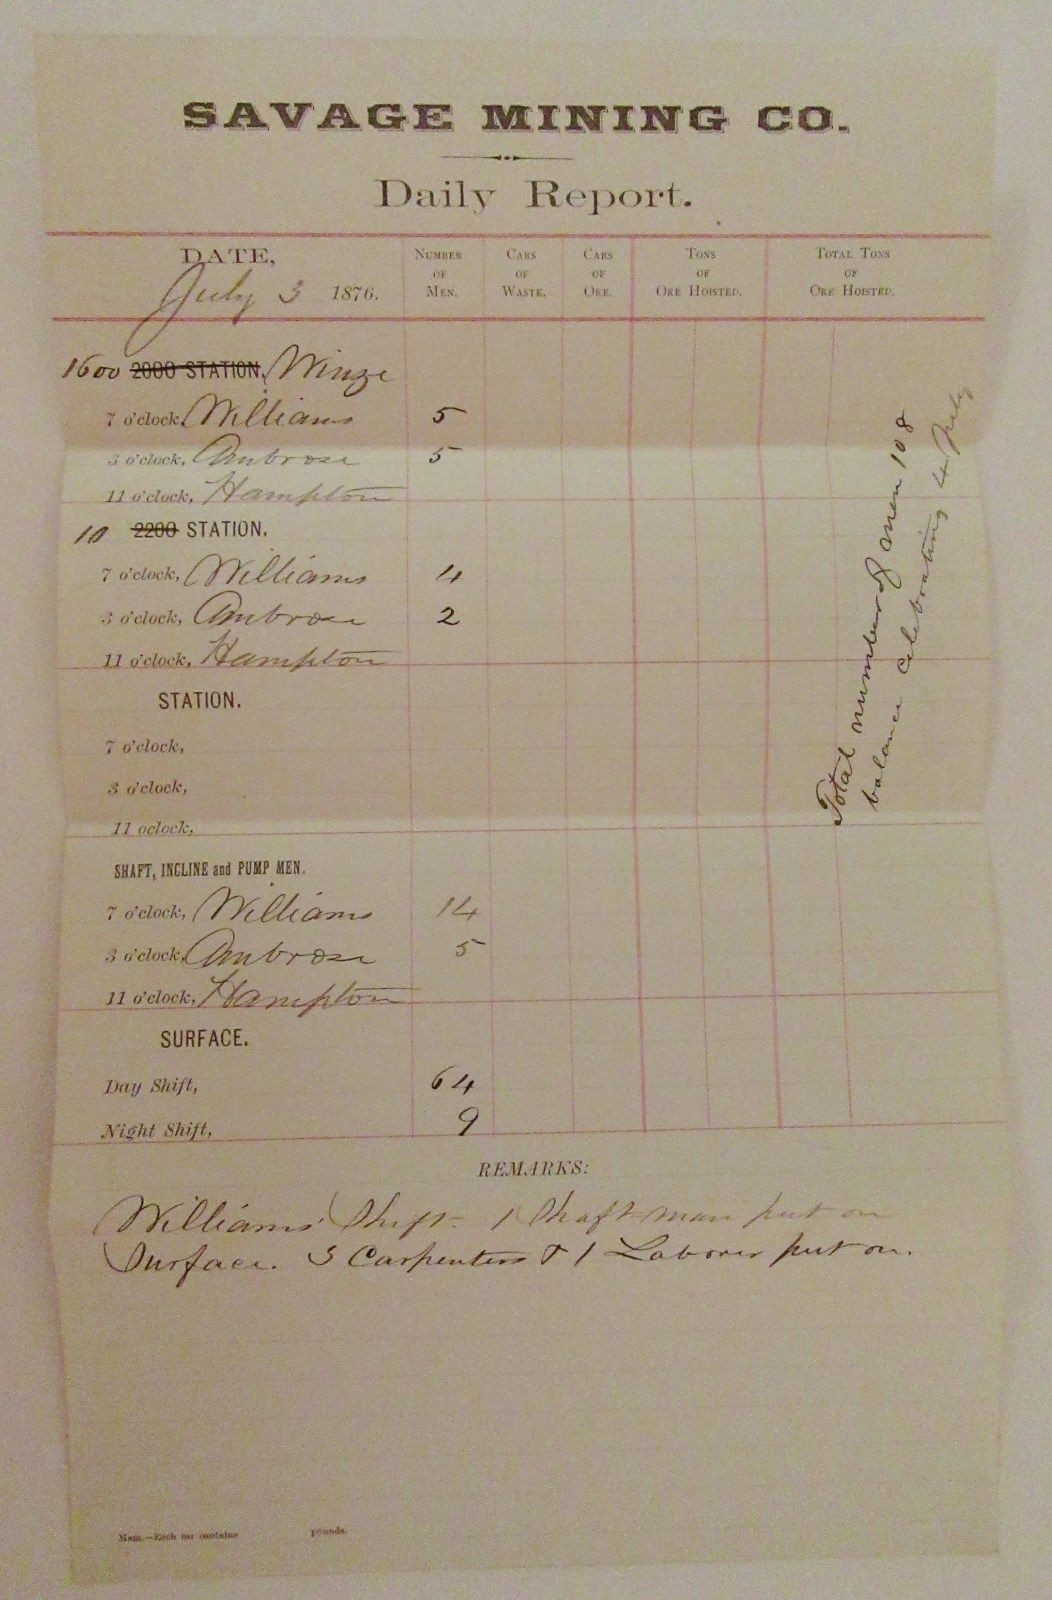 SAVAGE MINING CO.
Daily Report.
DATE, July 3 1876.
NUMBER OF MEN.
CARS OF WASTE.
CARS OF ORE.
TONS OF ORE HOISTED.
TOTAL TONS OF ORE HOISTED.
1600 2000 STATION, Winze
7 o'clock, Williams 5
3 o'clock, Ambrose 5
11 o'clock, Hampton
10 2200 STATION.
7 o'clock, Williams 4
3 o'clock, Ambrose 2
11 o'clock, Hampton
STATION.
7 o'clock,
3 o'clock,
11 oclock,
SHAFT, INCLINE and PUMP MEN.
7 o'clock, Williams 14
3 o'clock, Ambrose 5
11 o'clock, Hampton
SURFACE.
Day Shift, 64
Night Shift, 9
Total number of men 108
balance celebrating 4 July
REMARKS:
Williams' Shift - 1 Shaft man put on
Surface. 3 Carpenters & 1 Laborer put on.
Mem.—Each car contains pounds.